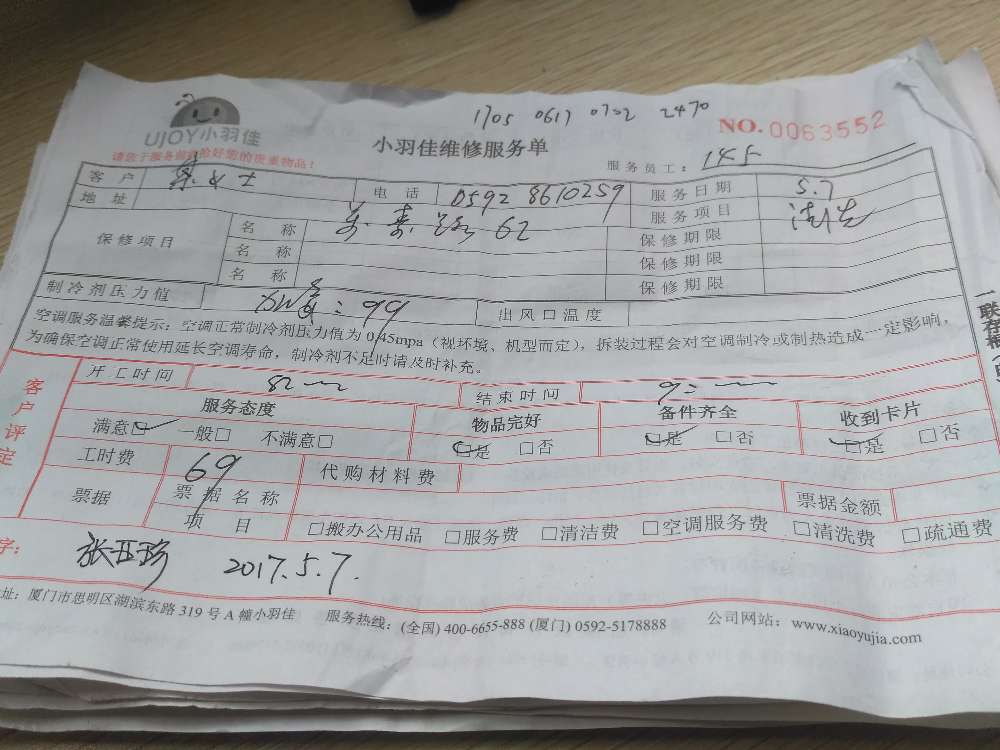 1705 0617 0702 2470
UJOY小羽佳
NO. 0063552
小羽佳维修服务单
请您于服务前收拾好您的贵重物品！
服务员工：145
客户 女士 电话 0592 8610259 服务日期 5.7
地址 服务项目 清洗
保修项目 名称 62 保修期限
名称 保修期限
名称 保修期限
制冷剂压力值 ：99 出风口温度
空调服务温馨提示：空调正常制冷剂压力值为0.45mpa（视环境、机型而定），拆装过程会对空调制冷或制热造成一定影响，
为确保空调正常使用延长空调寿命，制冷剂不足时请及时补充。
客户评定
开工时间 结束时间
服务态度 物品完好 备件齐全 收到卡片
满意□ 一般□ 不满意□ □是 □否 □是 □否 □是 □否
工时费 69 代购材料费
票据 票据名称 票据金额
项目 □搬办公用品 □服务费 □清洁费 □空调服务费 □清洗费 □疏通费
字： 张亚珍 2017.5.7.
址：厦门市思明区湖滨东路319号A幢小羽佳 服务热线：(全国) 400-6655-888 (厦门) 0592-5178888 公司网站：www.xiaoyujia.com